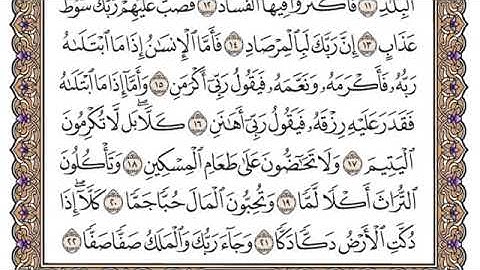 ٱلْبِلَٰدِ ۝١١ فَأَكْثَرُوا۟ فِيهَا ٱلْفَسَادَ ۝١٢ فَصَبَّ عَلَيْهِمْ رَبُّكَ سَوْطَ
عَذَابٍ ۝١٣ إِنَّ رَبَّكَ لَبِٱلْمِرْصَادِ ۝١٤ فَأَمَّا ٱلْإِنسَٰنُ إِذَا مَا ٱبْتَلَىٰهُ
رَبُّهُۥ فَأَكْرَمَهُۥ وَنَعَّمَهُۥ فَيَقُولُ رَبِّىٓ أَكْرَمَنِ ۝١٥ وَأَمَّآ إِذَا مَا ٱبْتَلَىٰهُ
فَقَدَرَ عَلَيْهِ رِزْقَهُۥ فَيَقُولُ رَبِّىٓ أَهَٰنَنِ ۝١٦ كَلَّا ۖ بَل لَّا تُكْرِمُونَ
ٱلْيَتِيمَ ۝١٧ وَلَا تَحَٰٓضُّونَ عَلَىٰ طَعَامِ ٱلْمِسْكِينِ ۝١٨ وَتَأْكُلُونَ
ٱلتُّرَاثَ أَكْلًا لَّمًّا ۝١٩ وَتُحِبُّونَ ٱلْمَالَ حُبًّا جَمًّا ۝٢٠ كَلَّآ ۖ إِذَا
دُكَّتِ ٱلْأَرْضُ دَكًّا دَكًّا ۝٢١ وَجَآءَ رَبُّكَ وَٱلْمَلَكُ صَفًّا صَفًّا ۝٢٢